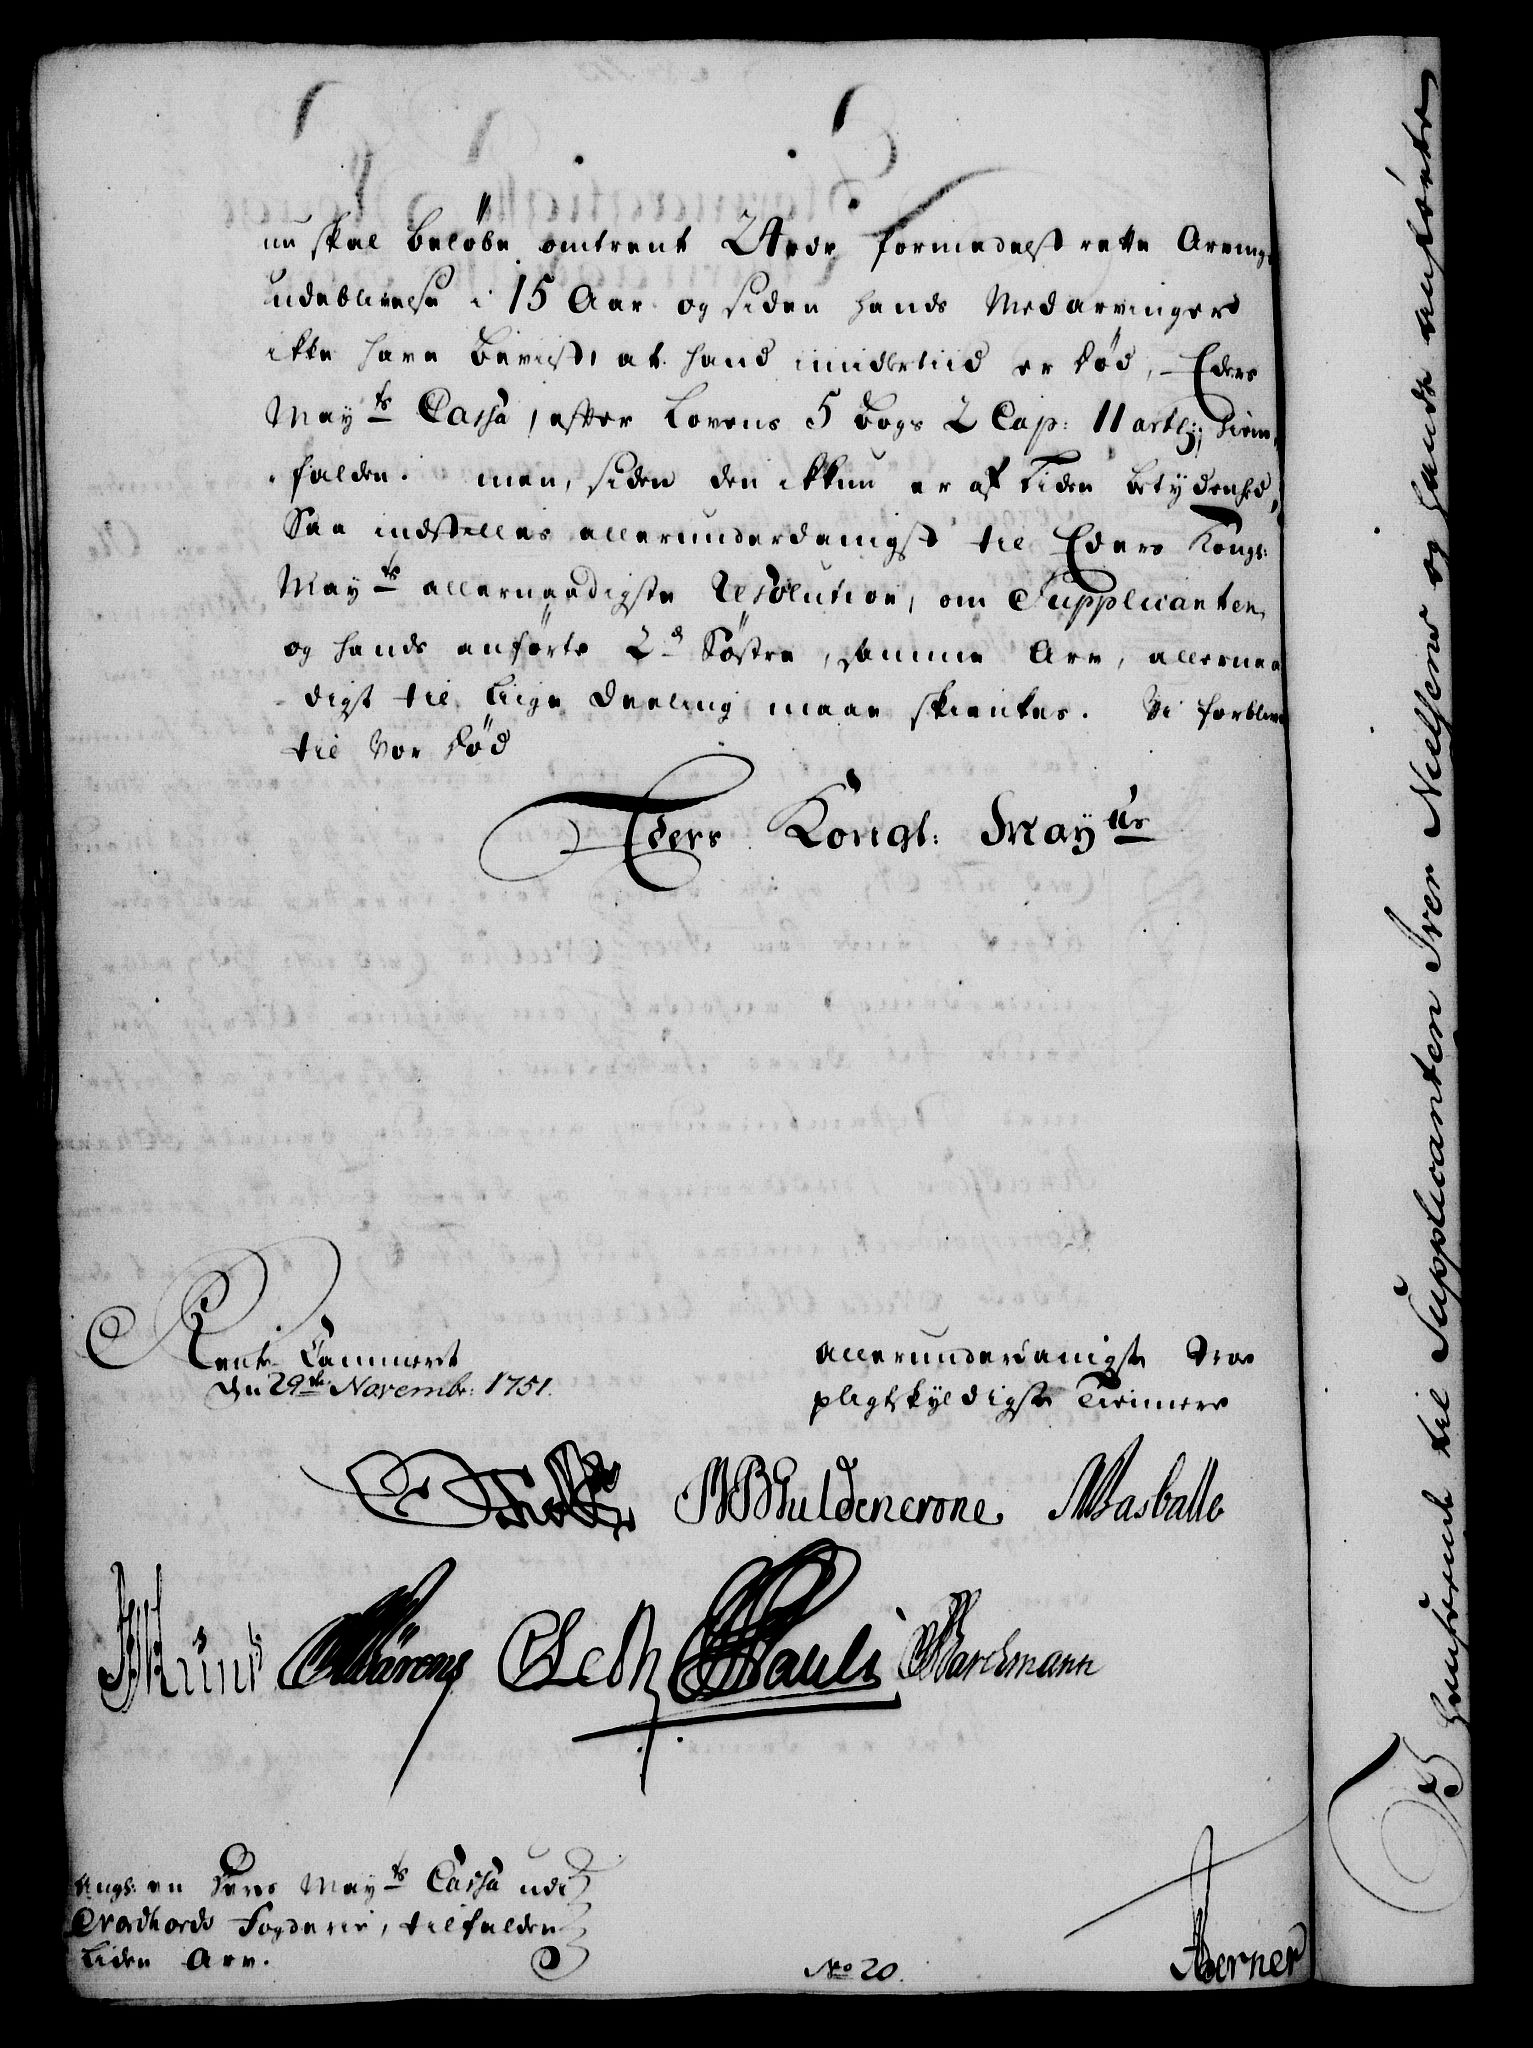 nu skal beløbe omtrent 24 rdr formedelst rette Arving
udeblivelse i 15 Aar og siden hands Medarvinger
ikke have beviist, at hand imidlertiid er død, Eders
Mayts Cassa, efter Lovens 5 Bogs 2 Cap: 11 artl: hiem
falden. men, siden den ikkun er af liden betydenhed,
Saa indstilles allerunderdanigst til Eders Kongl:
Mayts allernaadigste Resolution, om Supplicanten,
og hands anførte 2de Søstre, samme Arv, allernaa
digst til liige deeling maae skienkes. Vi forblive
til vor død
Eders Kongl: Mayts
Rente Cammeret
den 29de Novembr: 1751.
allerunderdanigste Troe
pligtskyldigste Tienere
Guldencrone
Leth Pauli
Angl: en Deres Mayts Cassa udi
Nordhords Fogderie, tilfalden
liden Arv.
No 20.
Berner
til Supplicanten Iver Nielsen og hands anførte